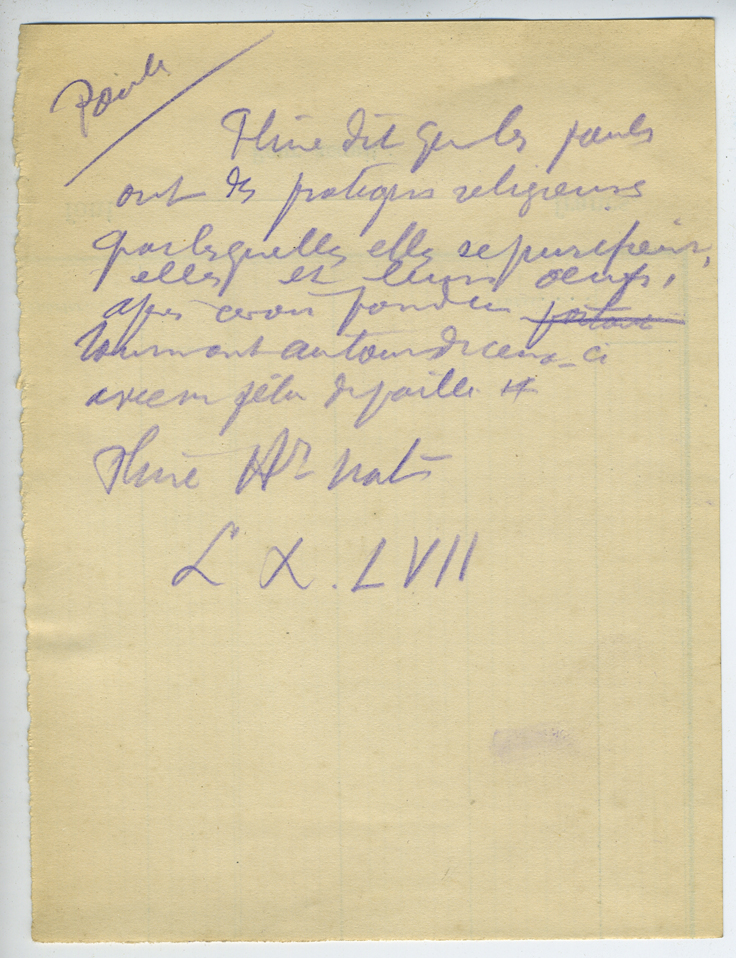 Poule
Pline dit que les poules
ont des pratiques religieuses
par lesquelles elles se purifient,
elles et leurs oeufs,
après avoir pondu
tournant autour de ceux-ci
avec un fétu de paille
Pline Hre nat
L X. LVII